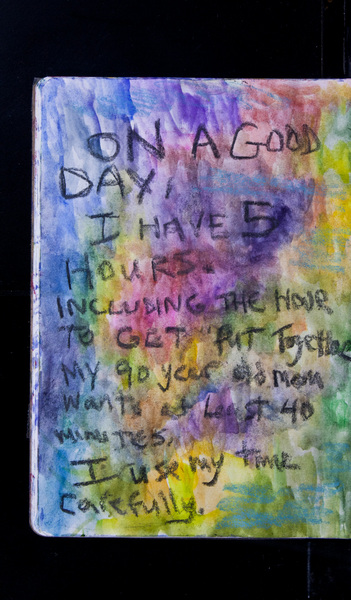 ON A GOOD
DAY,
I HAVE 5
HOURS.
INCLUDING THE HOUR
TO GET "PUT Together
My 90 year old mom
wants at least 40
minutes.
I use my time
carefully.